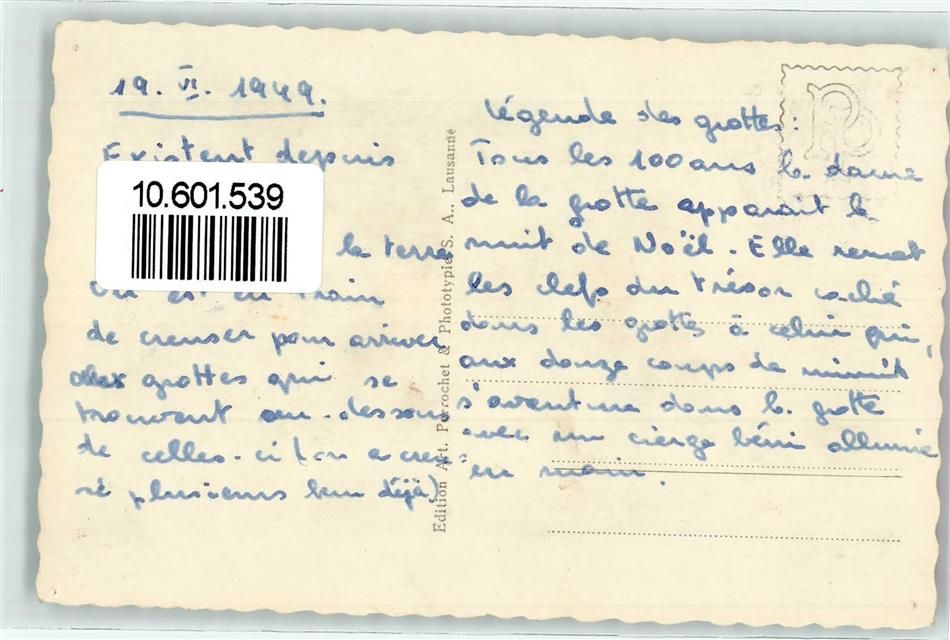 19. VI. 1949.
Existent depuis
10.601.539
la terre
On est en train
de creuser pour arriver
aux grottes qui se
trouvent au-dessous
de celles-ci (on a creu-
sé plusieurs km déjà)
Edition Art. Perrochet & Phototypie S. A., Lausanne
Légende des grottes :
Tous les 100 ans la dame
de la grotte apparait la
nuit de Noël. Elle remet
les clefs du trésor caché
dans les grottes à celui qui,
aux douze coups de minuit
s'aventure dans la grotte
avec un cierge béni allumé
en main.